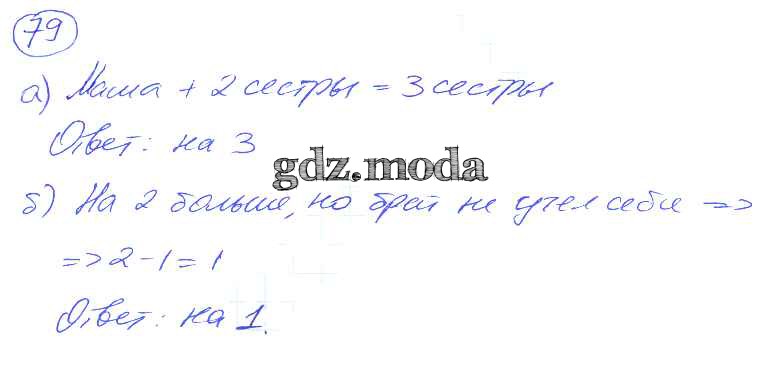 79
а) Маша + 2 сестры = 3 сестры
Ответ: на 3
gdz.moda
б) На 2 больше, но брат не учел себя =>
=> 2 - 1 = 1
Ответ: на 1.